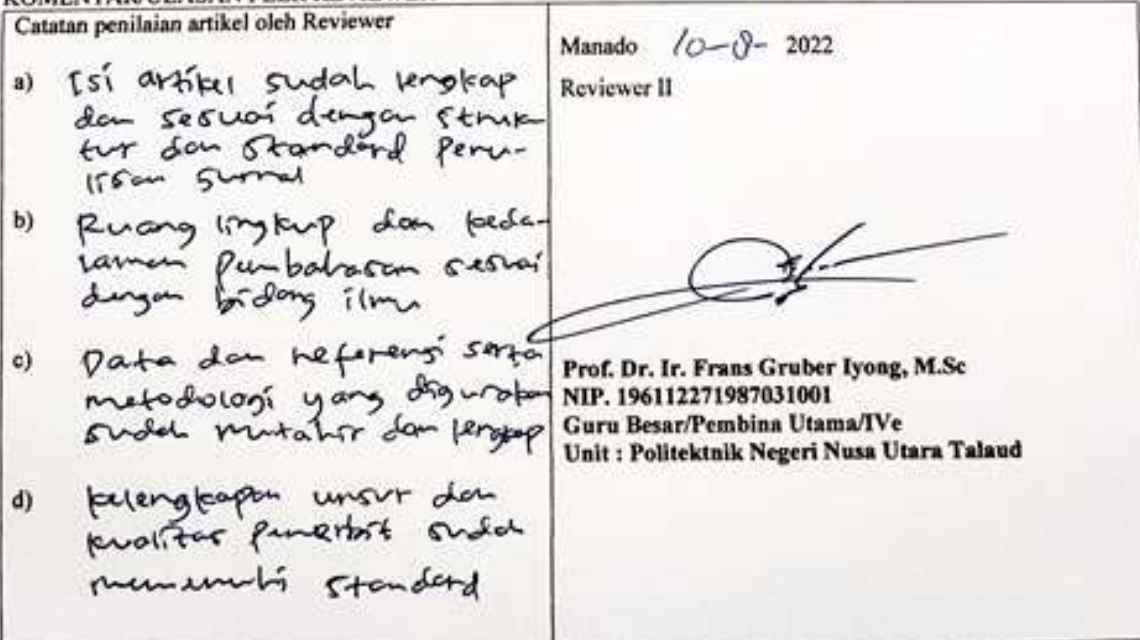 Catatan penilaian artikel oleh Reviewer
a) Isi artikel sudah lengkap
dan sesuai dengan struk-
tur dan standard penu-
lisan jurnal
b) Ruang lingkup dan keda-
laman pembahasan sesuai
dengan bidang ilmu
c) Data dan referensi serta
metodologi yang digunakan
sudah mutahir dan lengkap
d) kelengkapan unsur dan
kualitas penerbit sudah
memenuhi standard
Manado 10-8- 2022
Reviewer II
Prof. Dr. Ir. Frans Gruber Iyong, M.Sc
NIP. 196112271987031001
Guru Besar/Pembina Utama/IVe
Unit : Politektnik Negeri Nusa Utara Talaud